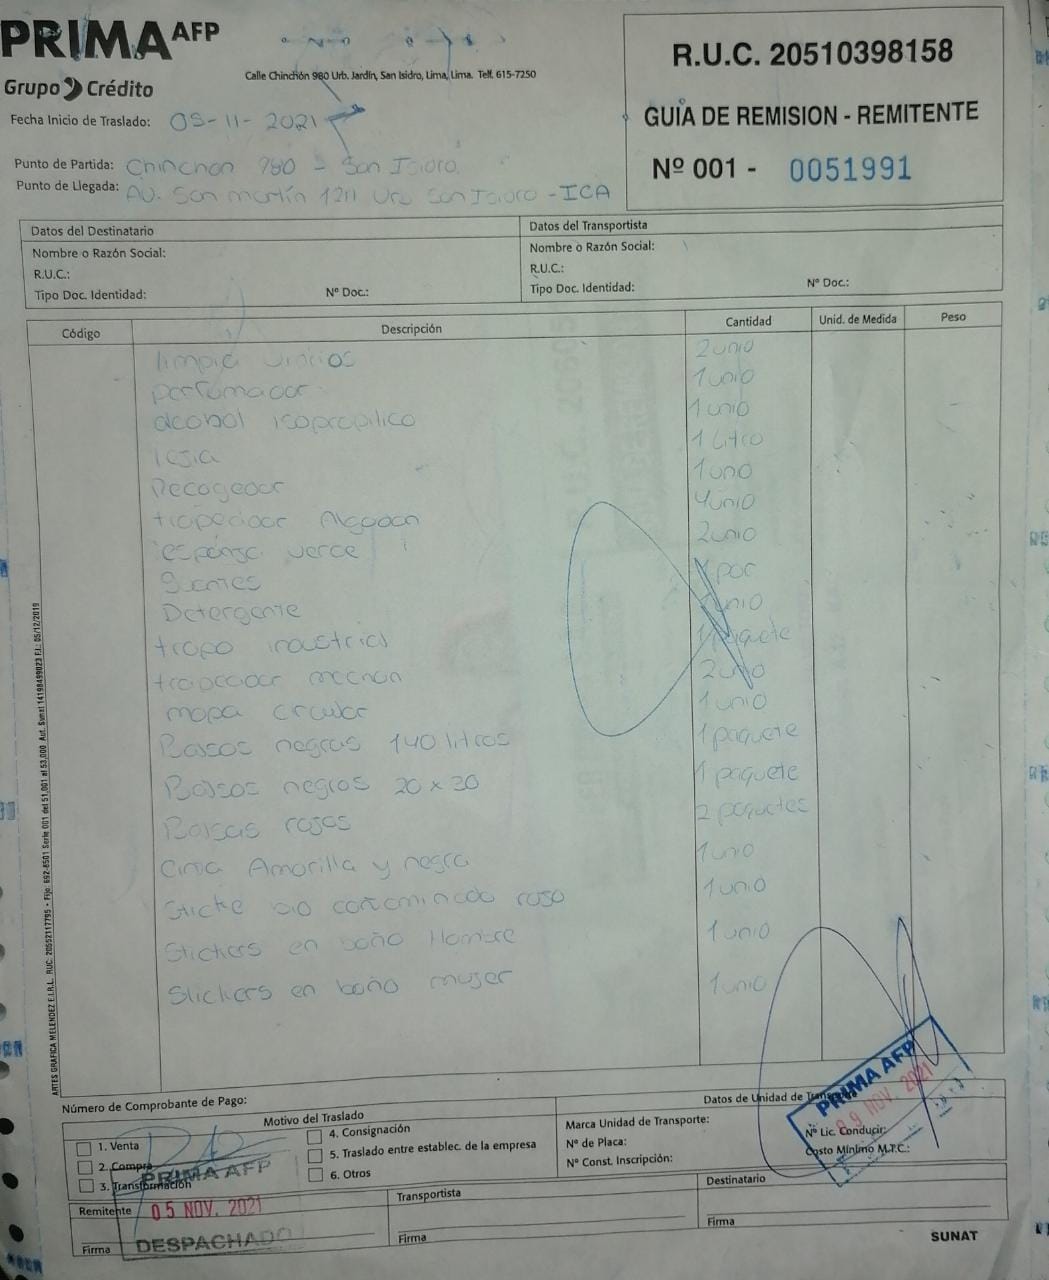 PRIMA AFP
Grupo Crédito
Calle Chinchón 980 Urb. Jardín, San Isidro, Lima, Lima. Telf. 615-7250
R.U.C. 20510398158
GUIA DE REMISION - REMITENTE
Nº 001 - 0051991
Fecha Inicio de Traslado: 05-11-2021
Punto de Partida: Chinchon 980 - San Isidro
Punto de Llegada: AV. San martín 1211 Urb San Isidro - ICA
Datos del Destinatario
Nombre o Razón Social:
R.U.C.:
Tipo Doc. Identidad: Nº Doc.:
Datos del Transportista
Nombre o Razón Social:
R.U.C.:
Tipo Doc. Identidad: Nº Doc.:
Código Descripción Cantidad Unid. de Medida Peso
limpia vidrios 2 unid
perfumador 1 unid
alcohol isopropilico 1 unid
lejia 1 Litro
Recogedor 1 und
trapeador Algodon 4 unid
esponja verde 2 unid
guantes 1 par
Detergente 1 unid
trapo industrial 1 paquete
trapeador mechon 2 unid
mopa circular 1 unid
Bolsas negras 140 litros 1 paquete
Bolsas negras 20 x 30 1 paquete
Bolsas rojas 2 paquetes
Cinta Amarilla y negra 1 unid
Sticke bio contaminado 1 unid
Stickers en baño Hombre 1 unid
Stickers en baño mujer 1 unid
ARTES GRAFICA MELENDEZ E.I.R.L. RUC: 20552117795 - Fijo: 692-8501 Serie 001 del 51,001 al 53,000 Aut. Sunat 14198499023 F.I.: 05/12/2019
Número de Comprobante de Pago:
Motivo del Traslado
1. Venta
2. Compra
3. Transformación
4. Consignación
5. Traslado entre establec. de la empresa
6. Otros
Datos de Unidad de Transporte
Marca Unidad de Transporte:
Nº de Placa:
Nº Const. Inscripción:
Nº Lic. Conducir:
Costo Mínimo M.T.C.:
PRIMA AFP
09 NOV. 2021
PRIMA AFP
05 NOV. 2021
DESPACHADO
Remitente
Firma
Transportista
Firma
Destinatario
Firma
SUNAT